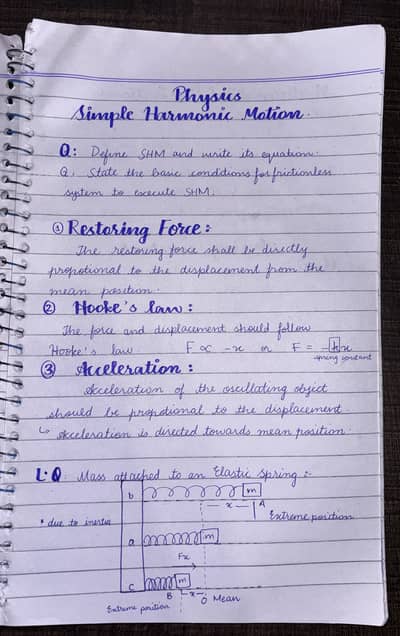 Physics
Simple Harmonic Motion.
Q: Define SHM and write its equation.
Q. State the basic conditions for frictionless
system to execute SHM.
① Restoring Force:
The restoring force shall be directly
propotional to the displacement from the
mean position.
② Hooke's law:
The force and displacement should follow
Hooke's law F ∝ -x or F = -kx
spring constant
③ Acceleration:
Acceleration of the oscillating object
should be propotional to the displacement.
↳ Acceleration is directed towards mean position.
L.Q. Mass attached to an Elastic Spring:-
b m
x A
Extreme position
* due to inertia
a m
Fx
c m
B x O Mean
Extreme position